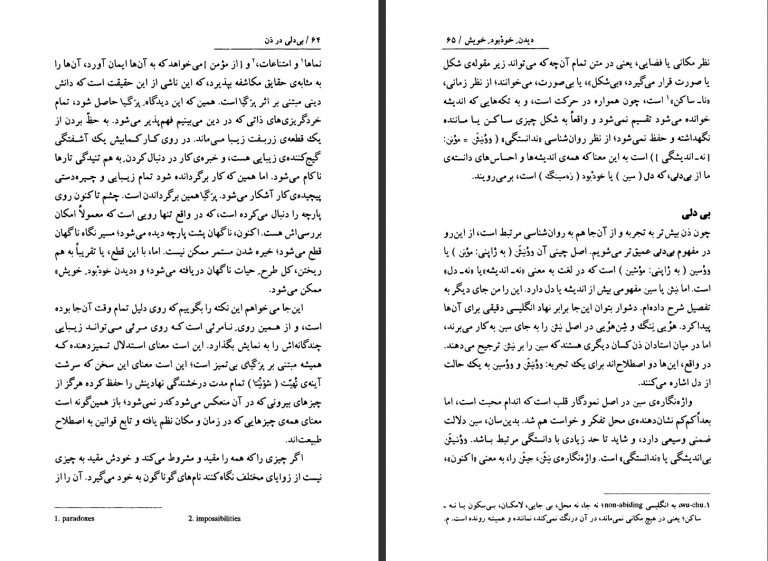 ۶۴ / بی‌دلی در ذن
نماها۱ و امتناعات،۲ و [ از مؤمن ] می‌خواهد که به آن‌ها ایمان آورد، آن‌ها را
به مثابه‌ی حقایق مکاشفه بپذیرد، که این ناشی از این حقیقت است که دانش
دینی مبتنی بر اثر پرَگیا حاصل شود، تمام
خردگریزی‌های ذاتی که در دین می‌بینیم فهم‌پذیر می‌شود. به حظّ بردن از
یک قطعه‌ی زربفت زیبا می‌ماند. در روی کار کمابیش یک آشفتگی
گیج‌کننده‌ی زیبایی هست، و خبره‌ی کار در دنبال کردن به هم تنیدگی تارها
ناکام می‌شود. اما همین که کار برگردانده شود تمام زیبایی و چیره‌دستی
پیچیده‌ی کار آشکار می‌شود. پرَگیا همین برگرداندن است. چشم تاکنون روی
پارچه را دنبال می‌کرده است، که در واقع تنها رویی است که معمولاً امکان
بررسی‌اش هست. اکنون، ناگهان پشت پارچه دیده می‌شود؛ مسیر نگاه ناگهان
قطع می‌شود؛ خیره شدن مستمر ممکن نیست. اما، با این قطع، یا تقریباً به هم
ریختن، کل طرح ِ حیات ناگهان دریافته می‌شود؛ و «دیدن خودْبود ِ خویش»
ممکن می‌شود.
این‌جا می‌خواهم این نکته را بگوییم که روی دلیل تمام وقت آن‌جا بوده
است، و از همین روی ِ نامرئی است که روی مرئی می‌تواند زیبایی
چندگانه‌اش را به نمایش بگذارد. این است معنای استدلال تمیزدهنده که
همیشه مبتنی بر پرَگیای بی‌تمیز است؛ این است معنای این سخن که سرشت
آینه‌ی تُهیّت ( شوُنْیَتا ) تمام مدت درخشندگی نهادینش را حفظ کرده هرگز از
چیزهای بیرونی که در آن منعکس می‌شود کدر نمی‌شود؛ باز همین‌گونه است
معنای همه‌ی چیزهایی که در زمان و مکان نظم یافته و تابع قوانین به اصطلاح
طبیعت‌اند.
اگر چیزی را که همه را مقید و مشروط می‌کند و خودش مقید به چیزی
نیست از زوایای مختلف نگاه کنند نام‌های گوناگون به خود می‌گیرد. آن را از
1. paradoxes 2. impossibilities
دیدن ِ خودْبود ِ خویش / ۶۵
نظر مکانی یا فضایی، یعنی در متن تمام آن‌چه که می‌تواند زیر مقوله‌ی شکل
یا صورت قرار می‌گیرد، «بی‌شکل»، یا بی‌صورت، می‌خوانند؛ از نظر زمانی،
«نا ـ ساکن»۱ است، چون همواره در حرکت است، و به تکه‌هایی که اندیشه
خوانده می‌شود تقسیم نمی‌شود و واقعاً به شکل چیزی ساکن یا ماننده
نگهداشته و حفظ نمی‌شود؛ از نظر روان‌شناسی «ندانستگی» ( وؤنیَن = مؤنن:
[ نه ـ اندیشگی ] ) است به این معنا که همه‌ی اندیشه‌ها و احساس‌های دانسته‌ی
ما از بی‌دلی، که دل ( سین ) یا خودْبود ( زه‌سینگ ) است، برمی‌رویند.
بی دلی
چون ذن بیش‌تر به تجربه و از آن‌جا هم به روان‌شناسی مرتبط است، از این‌رو
در مفهوم بی‌دلی عمیق‌تر می‌شویم. اصل چینی آن وؤنیَن ( به ژاپنی: مؤنن ) یا
وؤسین ( به ژاپنی: مؤشین ) است که در لغت به معنی «نه‌ـ اندیشه» یا «نه‌ـ دل»
است. اما نیَن یا سین مفهومی بیش از اندیشه یا دل دارد. این را من جای دیگر به
تفصیل شرح داده‌ام. دشوار بتوان این‌جا برابر نهاد انگلیسی دقیقی برای آن‌ها
پیدا کرد. هؤیی نِنگ و شِن‌هؤیی در اصل نیَن را به جای سین به کار می‌برند،
اما در میان استادان ذن کسان دیگری هستند که سین را بر نیَن ترجیح می‌دهند.
در واقع، این‌ها دو اصطلاح‌اند برای یک تجربه: وؤنیَن و وؤسین به یک حالت
از دل اشاره می‌کنند.
واژه‌نگاره‌ی سین در اصل نمودگار قلب است که اندام محبت است، اما
بعداً کم‌کم نشان‌دهنده‌ی محل تفکر و خواست هم شد. بدین‌سان، سین دلالت
ضمنی وسیعی دارد، و شاید تا حد زیادی با دانستگی مرتبط باشد. وؤنیَن
بی‌اندیشگی یا «ندانستگی» است. واژه‌نگاره‌ی نیَن، جیَن را، به معنی «اکنون»،
۱. wu-chu، به انگلیسی non-abiding؛ نه جا، نه محل، بی جایی، لامکان، بی‌سکون یا نه ـ
ساکن؛ یعنی در هیچ مکانی نمی‌ماند، در آن درنگ نمی‌کند، نماننده و همیشه رونده است. م.